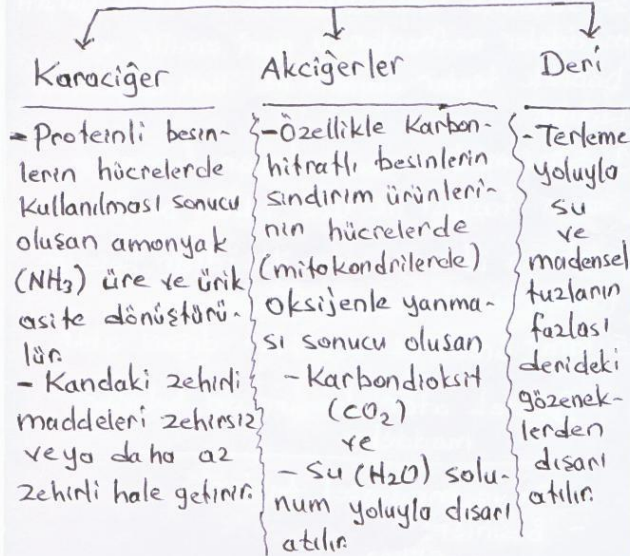 Karaciğer
- Proteinli besin-
lerin hücrelerde
kullanılması sonucu
oluşan amonyak
(NH₃) üre ve ürik
asite dönüştürü-
lür.
- Kandaki zehirli
maddeleri zehirsiz
veya daha az
zehirli hale getirir.
Akciğerler
- Özellikle Karbon-
hitratlı besinlerin
sindirim ürünleri-
nin hücrelerde
(mitokondrilerde)
oksijenle yanma-
sı sonucu oluşan
- Karbondioksit
(CO₂)
ve
- Su (H₂O) solu-
num yoluyla dışarı
atılır.
Deri
- Terleme
yoluyla
su
ve
madensel
tuzların
fazlası
derideki
gözenek-
lerden
dışarı
atılır.